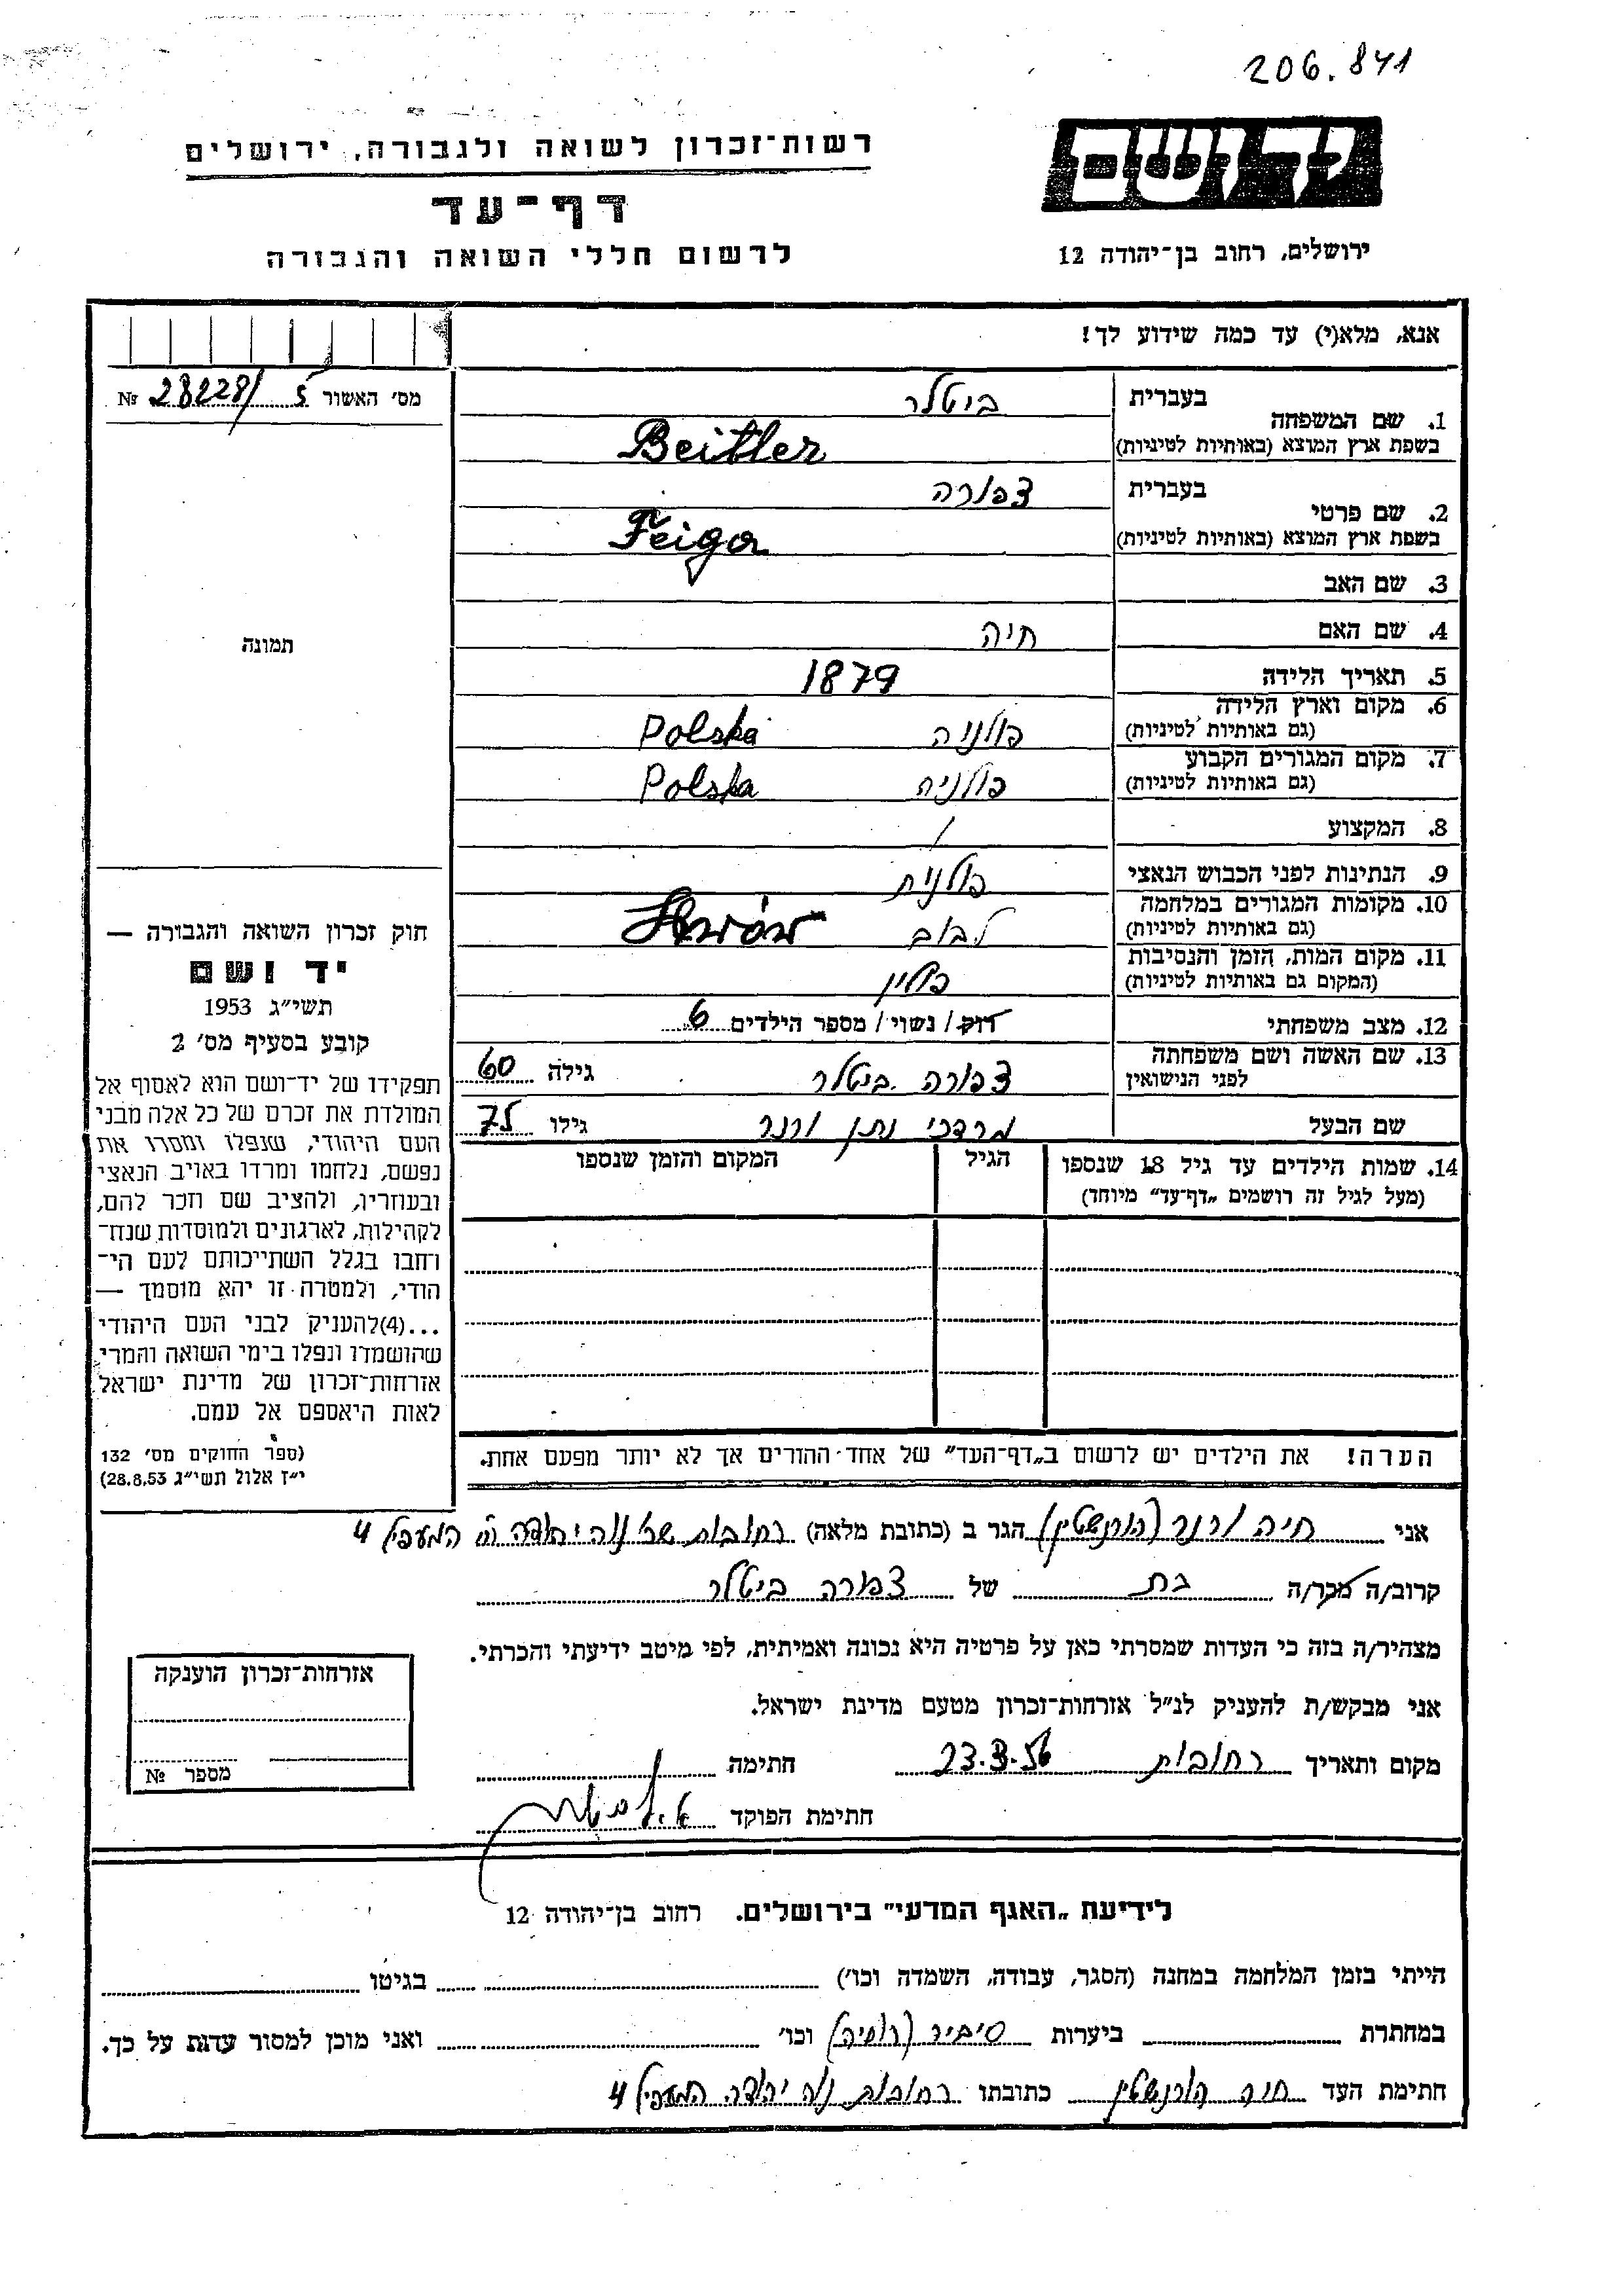 206.841
יד ושם
רשות־זכרון לשואה ולגבורה, ירושלים
דף־עד
לרשום חללי השואה והגבורה
ירושלים, רחוב בן־יהודה 12
אנא, מלא(י) עד כמה שידוע לך!
מס׳ האשור 5 /28228 №
תמונה
1. שם המשפחה בעברית ביטלר
בשפת ארץ המוצא (באותיות לטיניות) Beitler
2. שם פרטי בעברית צפורה
בשפת ארץ המוצא (באותיות לטיניות) Feiga
3. שם האב
4. שם האם חיה
5. תאריך הלידה 1879
6. מקום וארץ הלידה (גם באותיות לטיניות) פולניה Polska
7. מקום המגורים הקבוע (גם באותיות לטיניות) פולניה Polska
8. המקצוע /
9. הנתינות לפני הכבוש הנאצי פולנית
10. מקומות המגורים במלחמה (גם באותיות לטיניות) לבוב
11. מקום המות, הזמן והנסיבות (המקום גם באותיות לטיניות) פולין
12. מצב משפחתי רוק / נשוי / מספר הילדים 6
13. שם האשה ושם משפחתה לפני הנישואין צפורה ביטלר גילה 60
שם הבעל מרדכי נתן ורנר גילו 75
14. שמות הילדים עד גיל 18 שנספו
(מעל לגיל זה רושמים „דף־עד” מיוחד)
הגיל
המקום והזמן שנספו
הערה! את הילדים יש לרשום ב„דף־העד” של אחד ההורים אך לא יותר מפעם אחת.
חוק זכרון השואה והגבורה —
יד ושם
תשי״ג 1953
קובע בסעיף מס׳ 2
תפקידו של יד־ושם הוא לאסוף אל
המולדת את זכרם של כל אלה מבני
העם היהודי, שנפלו ומסרו את
נפשם, נלחמו ומרדו באויב הנאצי
ובעוזריו, ולהציב שם וזכר להם,
לקהילות, לארגונים ולמוסדות שנח־
רבו בגלל השתייכותם לעם הי־
הודי, ולמטרה זו יהא מוסמך —
...(4)להעניק לבני העם היהודי
שהושמדו ונפלו בימי השואה והמרי
אזרחות־זכרון של מדינת ישראל
לאות היאספם אל עמם.
(ספר החוקים מס׳ 132
י״ז אלול תשי״ג 28.8.53)
אני חיה ורנר (הורנשטין) הגר ב (כתובת מלאה) רחובות שכ׳ נוה יהודה רח׳ המעפיל 4
קרוב/ה מכר/ה בת של צפורה ביטלר
מצהיר/ה בזה כי העדות שמסרתי כאן על פרטיה היא נכונה ואמיתית, לפי מיטב ידיעתי והכרתי.
אני מבקש/ת להעניק לנ״ל אזרחות־זכרון מטעם מדינת ישראל.
מקום ותאריך רחובות 23.3.56 חתימה
חתימת הפוקד
אזרחות־זכרון הוענקה
מספר №
לידיעת „האגף המדעי” בירושלים. רחוב בן־יהודה 12
הייתי בזמן המלחמה במחנה (הסגר, עבודה, השמדה וכו׳) בגיטו
במחתרת ביערות סיביר (רוסיה) וכו׳ ואני מוכן למסור עדות על כך.
חתימת העד חיה הורנשטין כתובתו רחובות נוה יהודה המעפיל 4